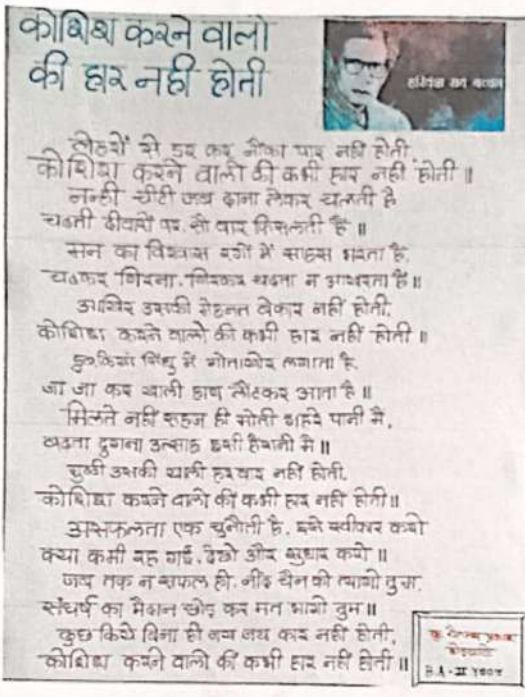 कोशिश करने वालो
की हार नही होती
हरिवंश राय बच्चन
लेहरों से डर कर नौका पार नही होती,
कोशिश करने वालो की कभी हार नहीं होती ॥
नन्ही चींटी जब दाना लेकर चलती है
चढती दीवारों पर, सौ बार फिसलती है ॥
मन का विश्वास रगों में साहस भरता है,
चढकर गिरना, गिरकर चढना न अखरता है ॥
आखिर उसकी मेहनत बेकार नहीं होती,
कोशिश करने वालो की कभी हार नहीं होती ॥
डुबकियां सिंधु में गोताखोर लगाता है,
जा जा कर खाली हाथ लौटकर आता है ॥
मिलते नहीं सहज ही मोती गहरे पानी में,
बढता दुगना उत्साह इसी हैरानी में ॥
मुठ्ठी उसकी खाली हर बार नहीं होती,
कोशिश करने वालो की कभी हार नहीं होती ॥
असफलता एक चुनौती है, इसे स्वीकार करो
क्या कमी रह गई, देखो और सुधार करो ॥
जब तक न सफल हो, नींद चैन को त्यागो तुम,
संघर्ष का मैदान छोड कर मत भागो तुम ॥
कुछ किये बिना ही जय जय कार नहीं होती,
कोशिश करने वालो की कभी हार नहीं होती ॥
B.A-II